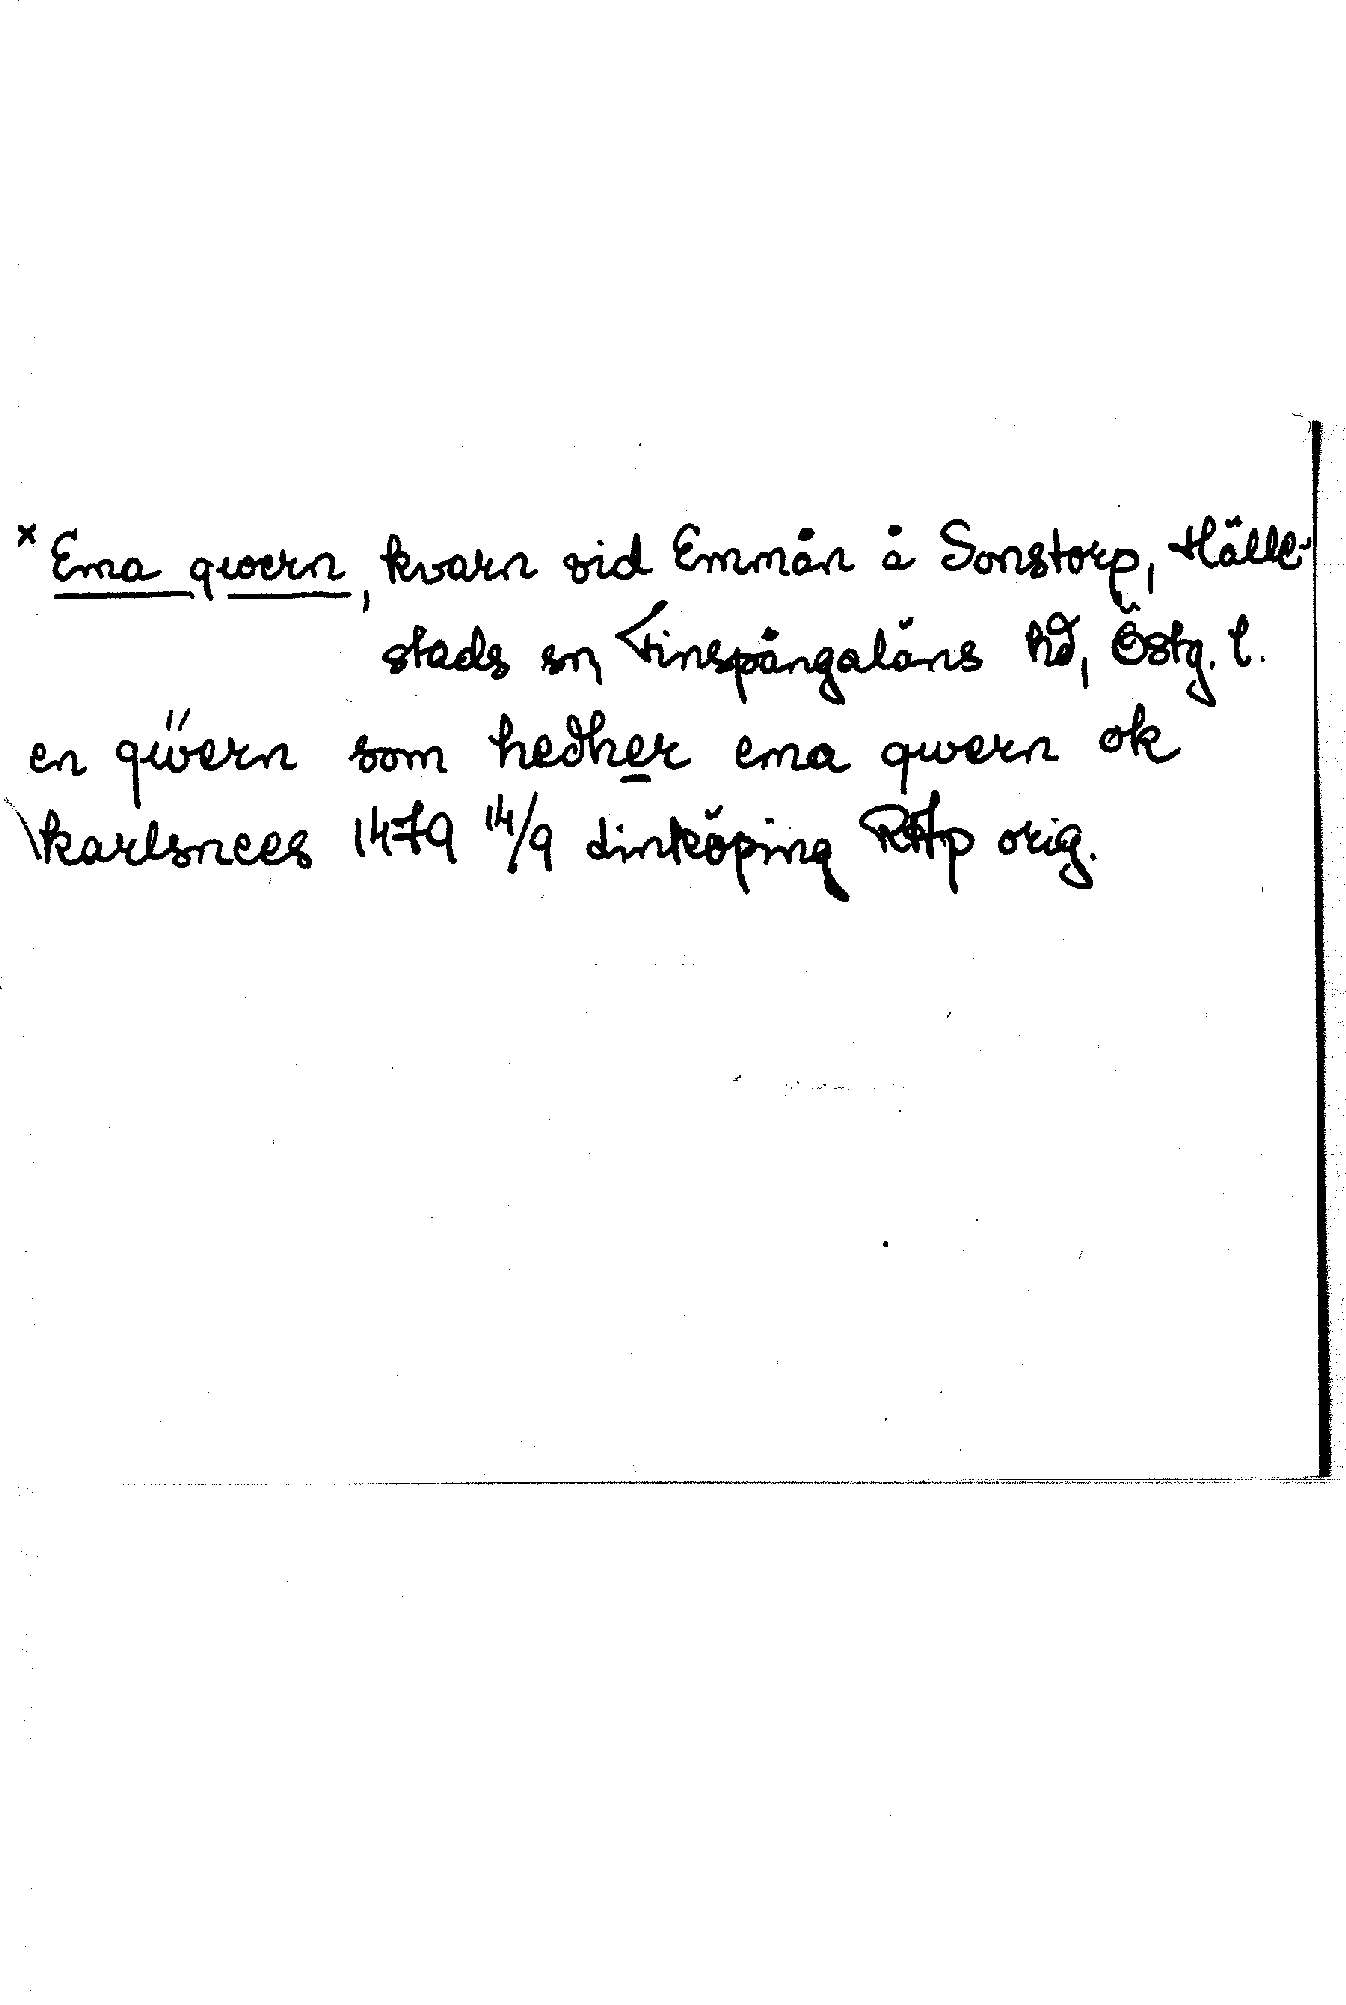 × Ema qwern, kvarn vid Emmån å Sonstorp, Hälle-
stads sn, Finspångaläns hd, Östg. l.
en qẅern som hedher ema qwern ok
karlsnees 1479 14/9 Linköping RAp orig.